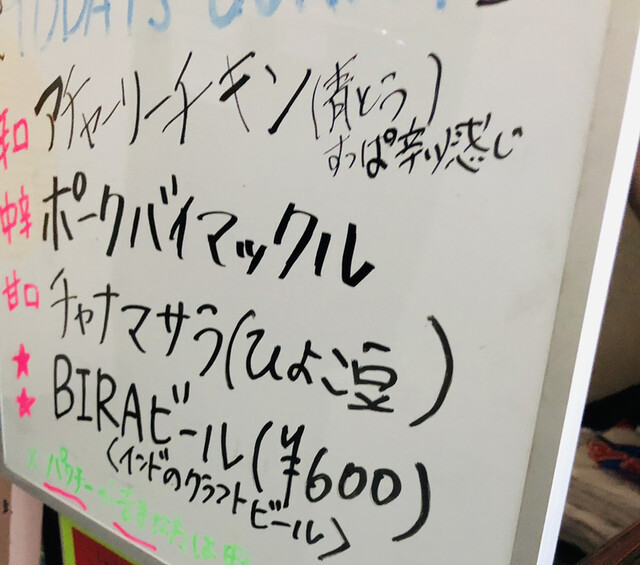 TODAYS
辛口 アチャーリーチキン(青とう)
すっぱ辛い感じ
中辛 ポークバイマックル
甘口 チャナマサラ(ひよこ豆)
★★ BIRAビール(¥600)
<インドのクラフトビール>
※パクチーが苦手な方は